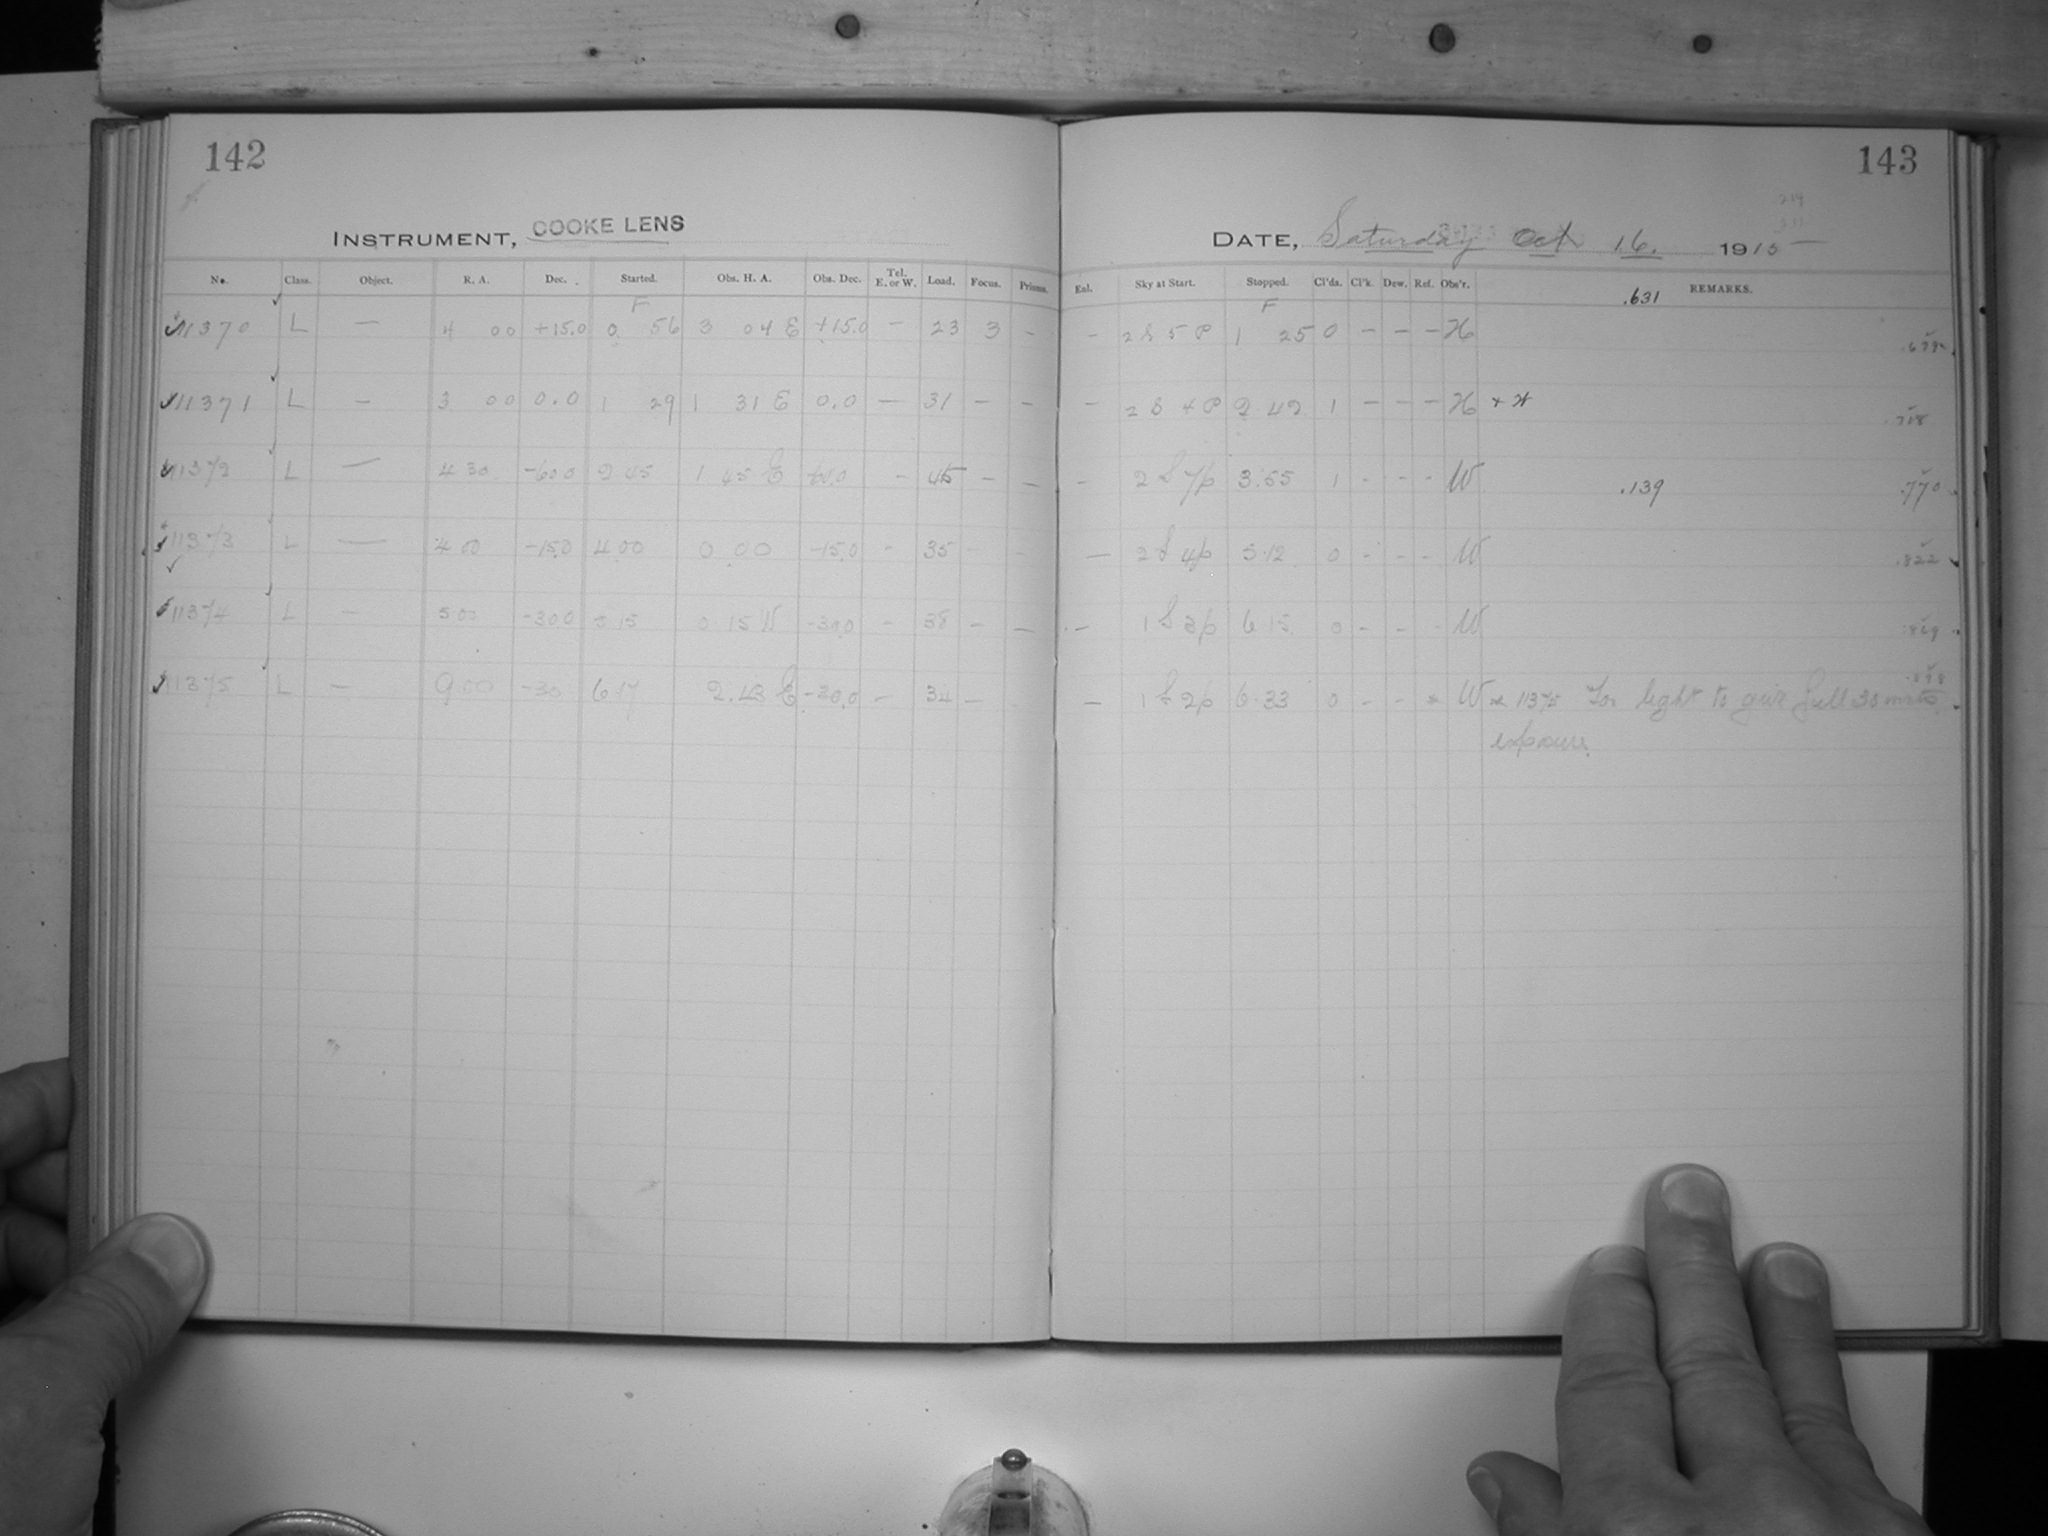 142
143
INSTRUMENT, COOKE LENS
DATE, Saturday Oct 16. 1915
No. Class. Object. R. A. Dec. Started. Obs. H. A. Obs. Dec. Tel. E. or W. Load. Focus. Prisms. Eal. Sky at Start. Stopped. Cl'ds. Cl'k. Dew. Ref. Obs'r. REMARKS.
.631
F F
11370 L — 4 00 +15.0 0 56 3 04 E +15.0 — 23 3 – – 2 S 5 P 1 25 0 – – – H
11371 L — 3 00 0.0 1 29 1 31 E 0.0 — 31 – – – 2 S 4 P 2 42 1 – – – H + *
.718
11372 L — 4 30 -60.0 2 45 1 45 E – 45 – – – 2 S 7p 3.55 1 – – – W .139 .770
11373 L — 4 00 -15.0 4 00 0 00 -15.0 – 35 – – — 2 S 4p 5.12 0 – – – W .822
11374 L — 5.00 -30.0 5 15 0 15 W -30.0 – 38 – – – 1 S 3p 6 15 0 – – – W
11375 L — 9 00 -30 6 17 2.43 E -30.0 – 34 – – 1 S 2p 6.33 0 – – * W * 11375 Too light to give full 30 mts
exposure.